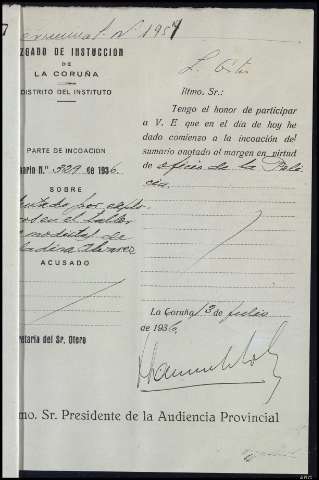 7
Nº 1957
ZGADO DE INSTUCCION
DE
LA CORUÑA
DISTRITO DEL INSTITUTO
PARTE DE INCOACION
nario N.º 329 de 1936
SOBRE
por
en el taller
de modistas de
Alvarez
ACUSADO
retaría del Sr. Otero
Iltmo. Sr.:
Tengo el honor de participar
a V. E que en el día de hoy he
dado comienzo a la incoación del
sumario anotado al margen en virtud
de oficio de la Poli
cia.
La Coruña 13 de julio
de 1936
mo. Sr. Presidente de la Audiencia Provincial